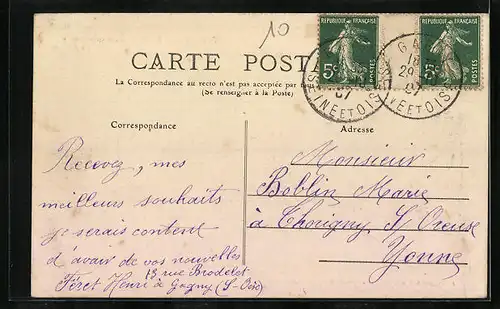 10
CARTE POSTALE
La Correspondance au recto n'est pas acceptée par
(Se renseigner à la Poste)
RÉPUBLIQUE FRANÇAISE
5c
POSTES
RÉPUBLIQUE FRANÇAISE
5c
POSTES
SEINE ET OISE
07
29
07
Correspondance
Adresse
Recevez, mes
meilleurs souhaits
je serais content
d'avoir de vos nouvelles
Féret Henri 13 rue Brodelet
à Gagny (S-Oise)
Monsieur
Boblin Marie
à Thorigny S/ Oreuse
Yonne